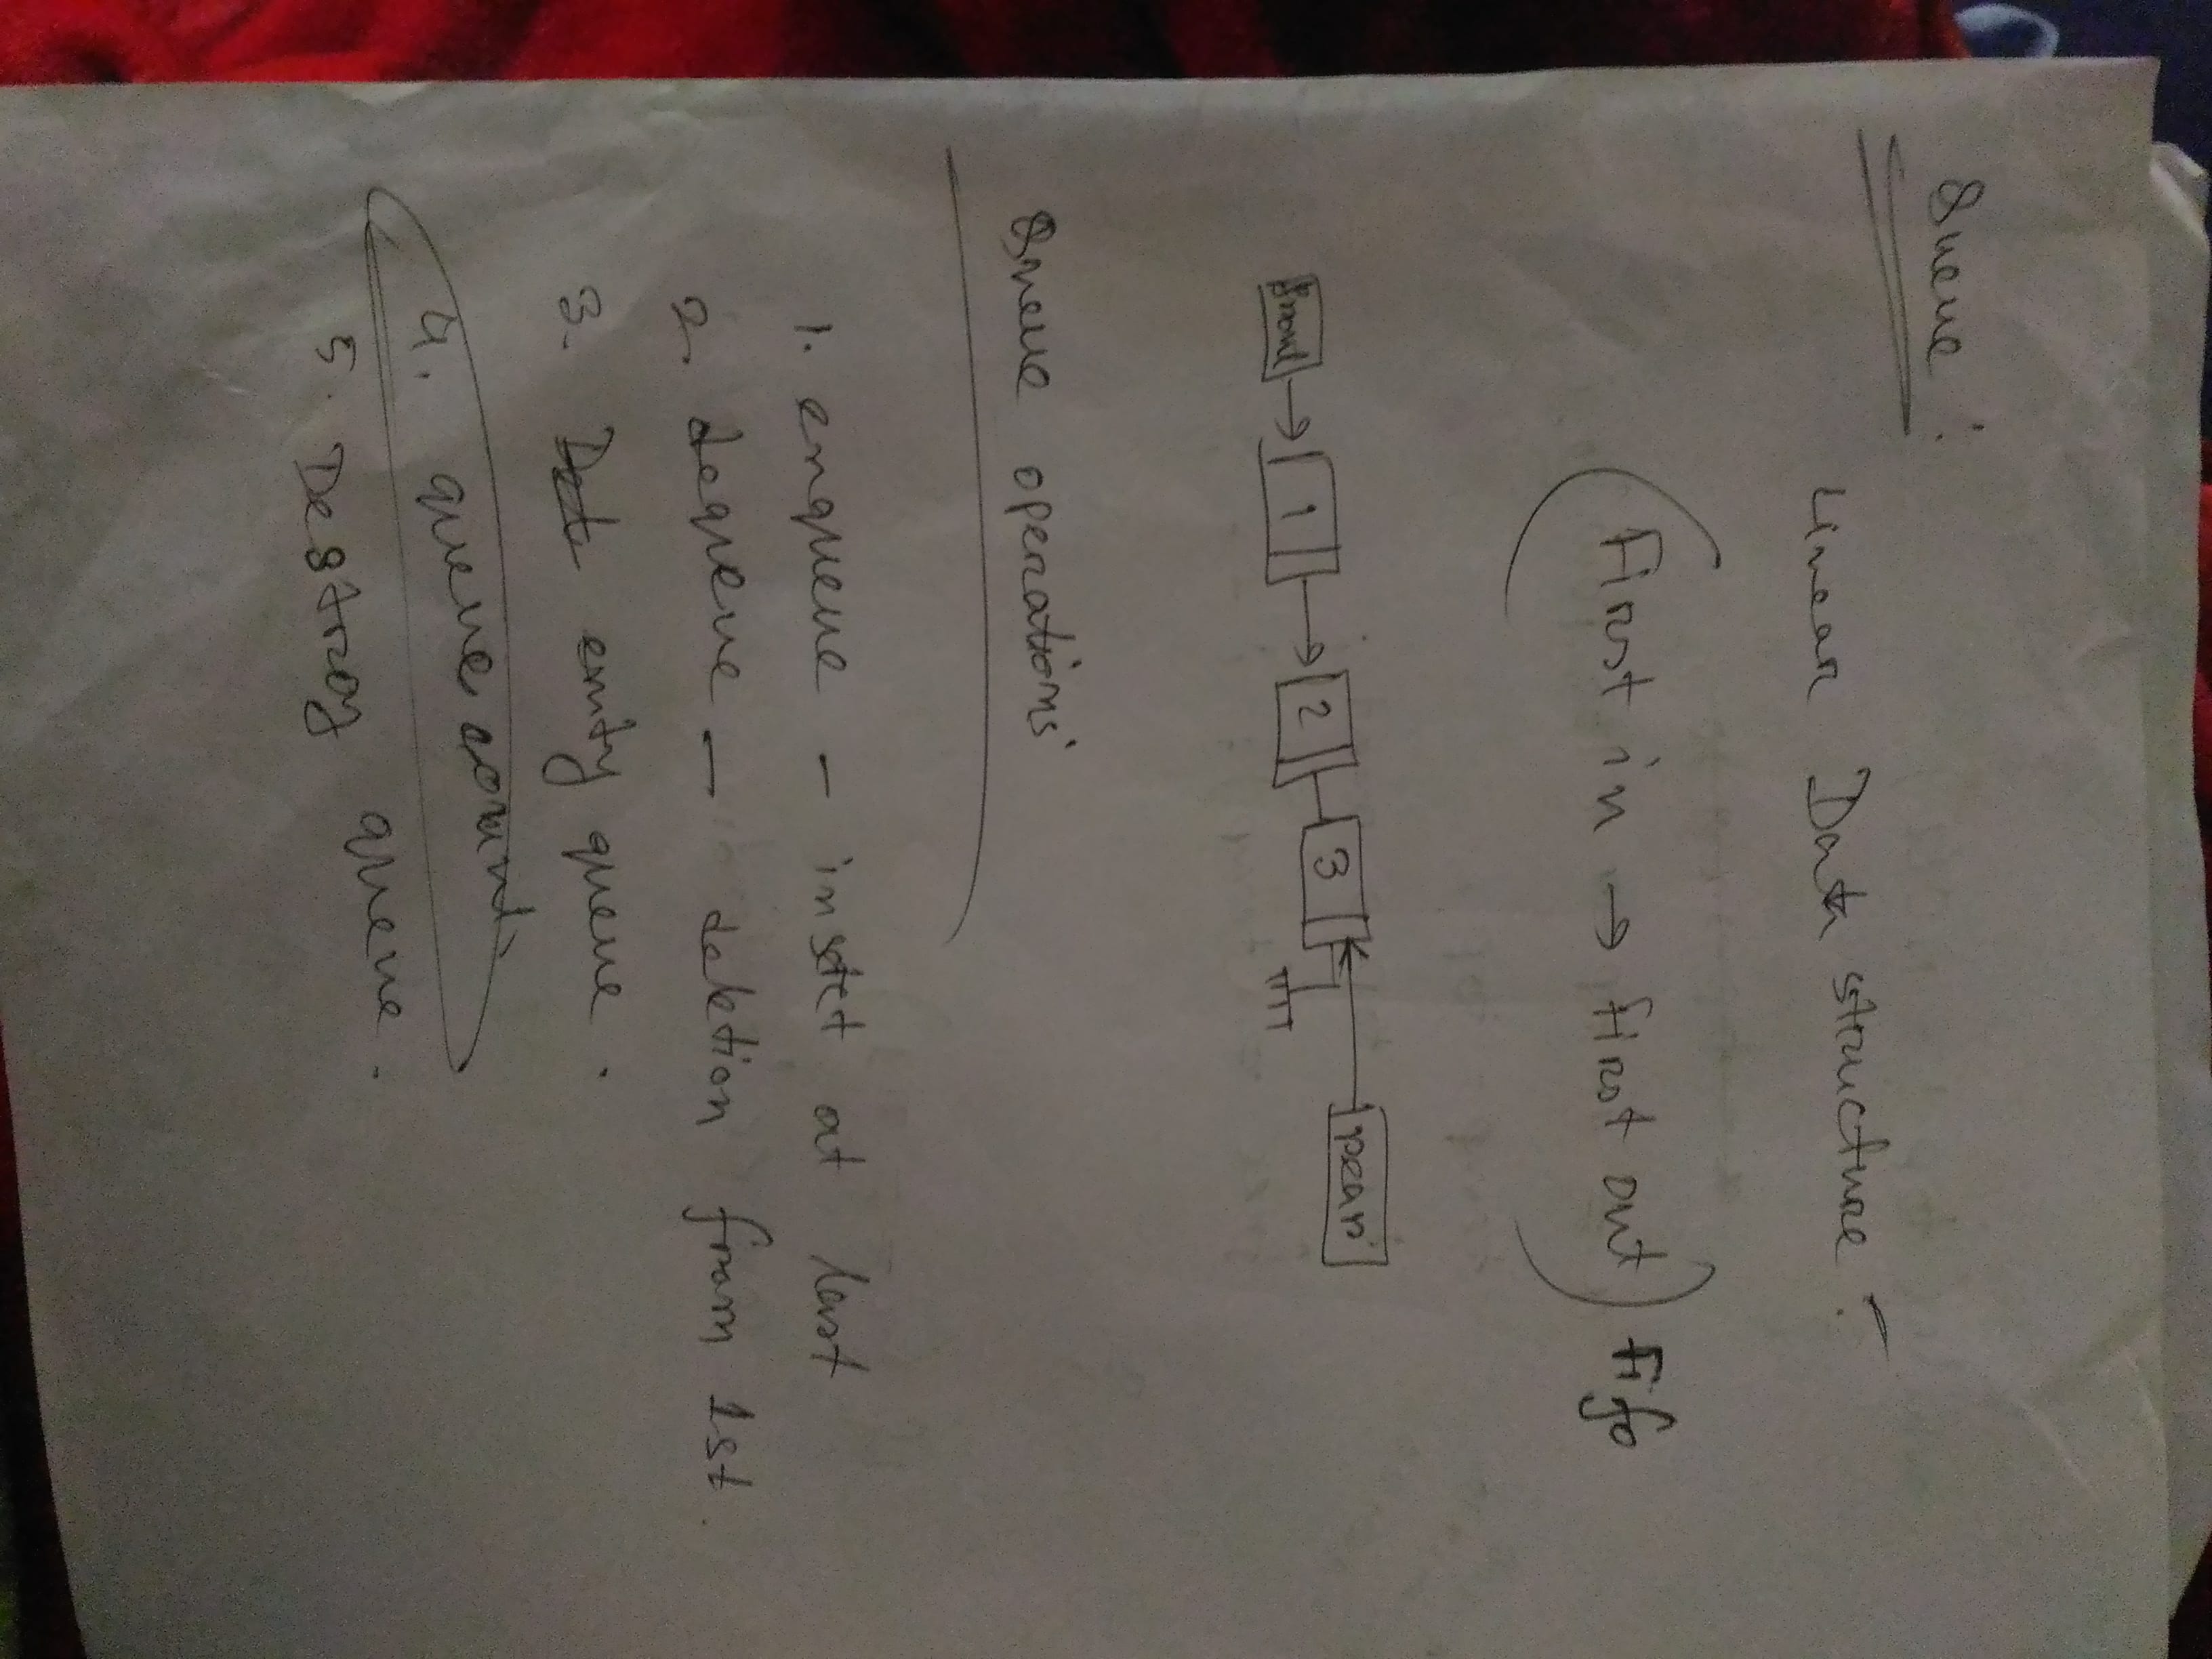 Queue :
Linear Data structure :-
(First in → first out) Fifo
front → 1 → 2 - 3 ← rear
Queue operations
1. enqueue - insert at last
2. dequeue - deletion from 1st.
3. emty queue .
4. queue count
5. Destroy queue .